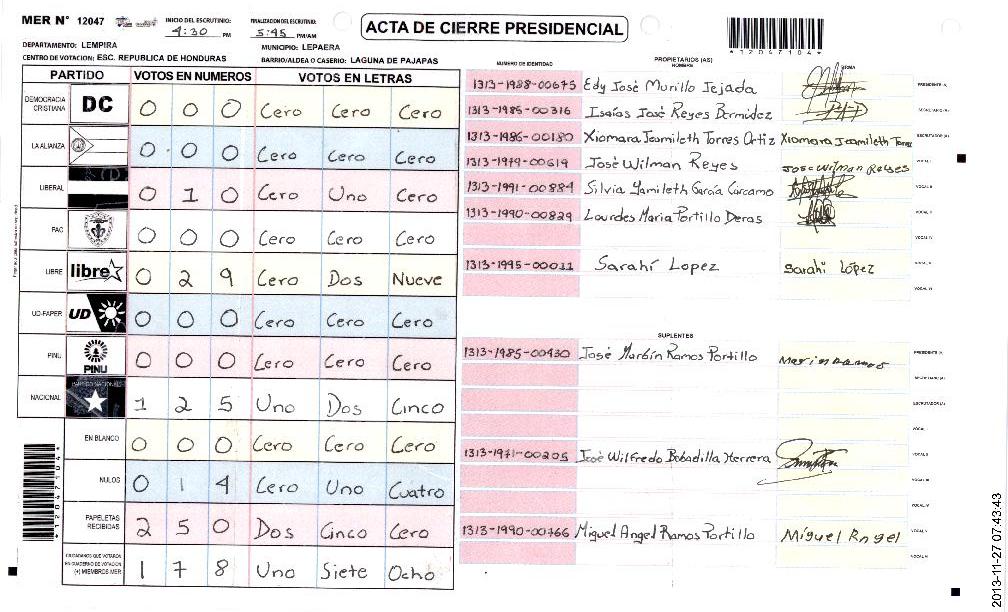 MER N° 12047
INICIO DEL ESCRUTINIO: 4:30 PM
FINALIZACION DEL ESCRUTINIO: 5:45 PM/AM
ACTA DE CIERRE PRESIDENCIAL
*12047104*
DEPARTAMENTO: LEMPIRA
MUNICIPIO: LEPAERA
CENTRO DE VOTACION: ESC. REPUBLICA DE HONDURAS
BARRIO/ALDEA O CASERIO: LAGUNA DE PAJAPAS
PARTIDO VOTOS EN NUMEROS VOTOS EN LETRAS
DEMOCRACIA CRISTIANA DC 0 0 0 Cero Cero Cero
LA ALIANZA 0 0 0 Cero Cero Cero
LIBERAL 0 1 0 Cero Uno Cero
PAC 0 0 0 Cero Cero Cero
LIBRE libre 0 2 9 Cero Dos Nueve
UD-FAPER UD 0 0 0 Cero Cero Cero
PINU PINU 0 0 0 Cero Cero Cero
NACIONAL PARTIDO NACIONAL 1 2 5 Uno Dos Cinco
EN BLANCO 0 0 0 Cero Cero Cero
NULOS 0 1 4 Cero Uno Cuatro
PAPELETAS RECIBIDAS 2 5 0 Dos Cinco Cero
CIUDADANOS QUE VOTARON EN CUADERNO DE VOTACION (+) MIEMBROS MER 1 7 8 Uno Siete Ocho
*12047104*
NUMERO DE IDENTIDAD PROPIETARIOS (AS) NOMBRE FIRMA
1313-1988-00675 Edy José Murillo Tejada PRESIDENTE (A)
1313-1985-00316 Isaías José Reyes Bermidez SECRETARIO (A)
1313-1986-00180 Xiomara Jamileth Torres Ortiz Xiomara Jeamileth Torres ESCRUTADOR (A)
1313-1979-00619 José Wilman Reyes Jose Wilman Reyes VOCAL I
1313-1991-00884 Silvia Yamileth García Carcamo VOCAL II
1313-1990-00829 Lourdes Maria Portillo Deras VOCAL III
VOCAL IV
1313-1995-00031 Sarahí Lopez Sarahi López VOCAL V
VOCAL VI
SUPLENTES
1313-1985-00430 José Marbin Ramos Portillo PRESIDENTE (A)
SECRETARIO (A)
ESCRUTADOR (A)
VOCAL I
1313-1971-00205 José Wilfredo Bobadilla Herrera VOCAL II
VOCAL III
VOCAL IV
1313-1990-00766 Miguel Angel Ramos Portillo Miguel Angel VOCAL V
VOCAL VI
2013-11-27 07:43:43